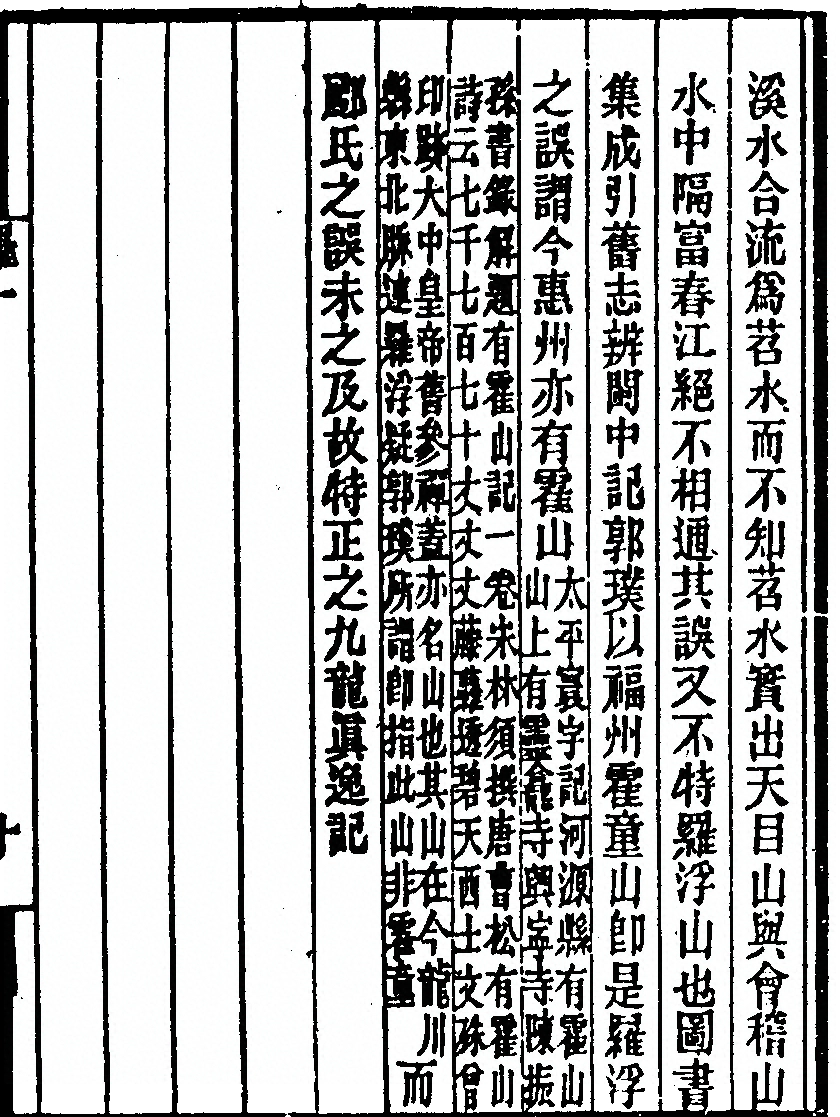 溪水合流爲苕水而不知苕水實出天目山與會稽山
水中隔富春江絕不相通其誤又不特羅浮山也圖書
集成引舊志辨閩中記郭璞以福州霍童山卽是羅浮
之誤謂今惠州亦有霍山
太平寰宇記河源縣有霍山
山上有靈龕寺興寧寺陳振
孫書錄解題有霍山記一卷宋林須撰唐曹松有霍山
詩云七千七百七十丈丈丈藤蘿透碧天西土文殊曾
印跡大中皇帝舊參禪蓋亦名山也其山在今龍川
縣東北脈連羅浮疑郭璞所謂卽指此山非霍童
而
酈氏之誤未之及故特正之九龍眞逸記